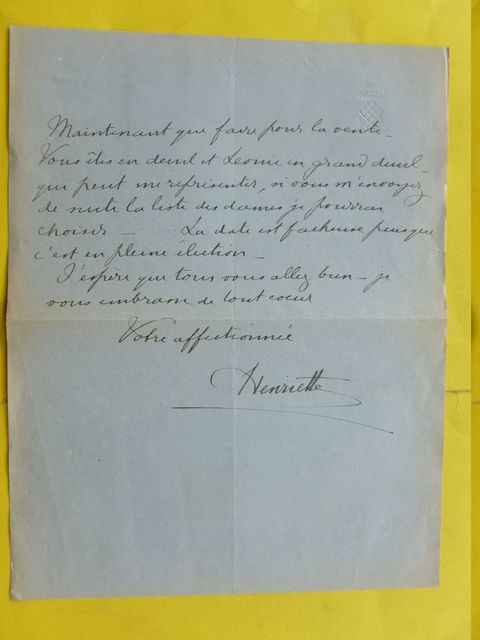 Maintenant que faire pour la vente -
Vous êtes en deuil et Léonie en grand deuil -
qui peut me représenter, si vous m'envoyez
de suite la liste des dames je pourrai
choisir - La date est fâcheuse puisque
c'est en pleine élection -
J'espère que tous vous allez bien - je
vous embrasse de tout coeur
Votre affectionnée
Henriette